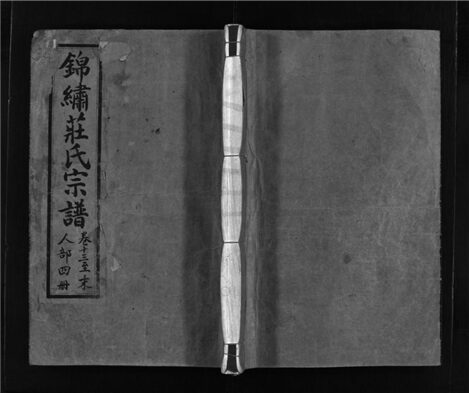 錦繡莊氏宗譜
卷十三至末
人部四册